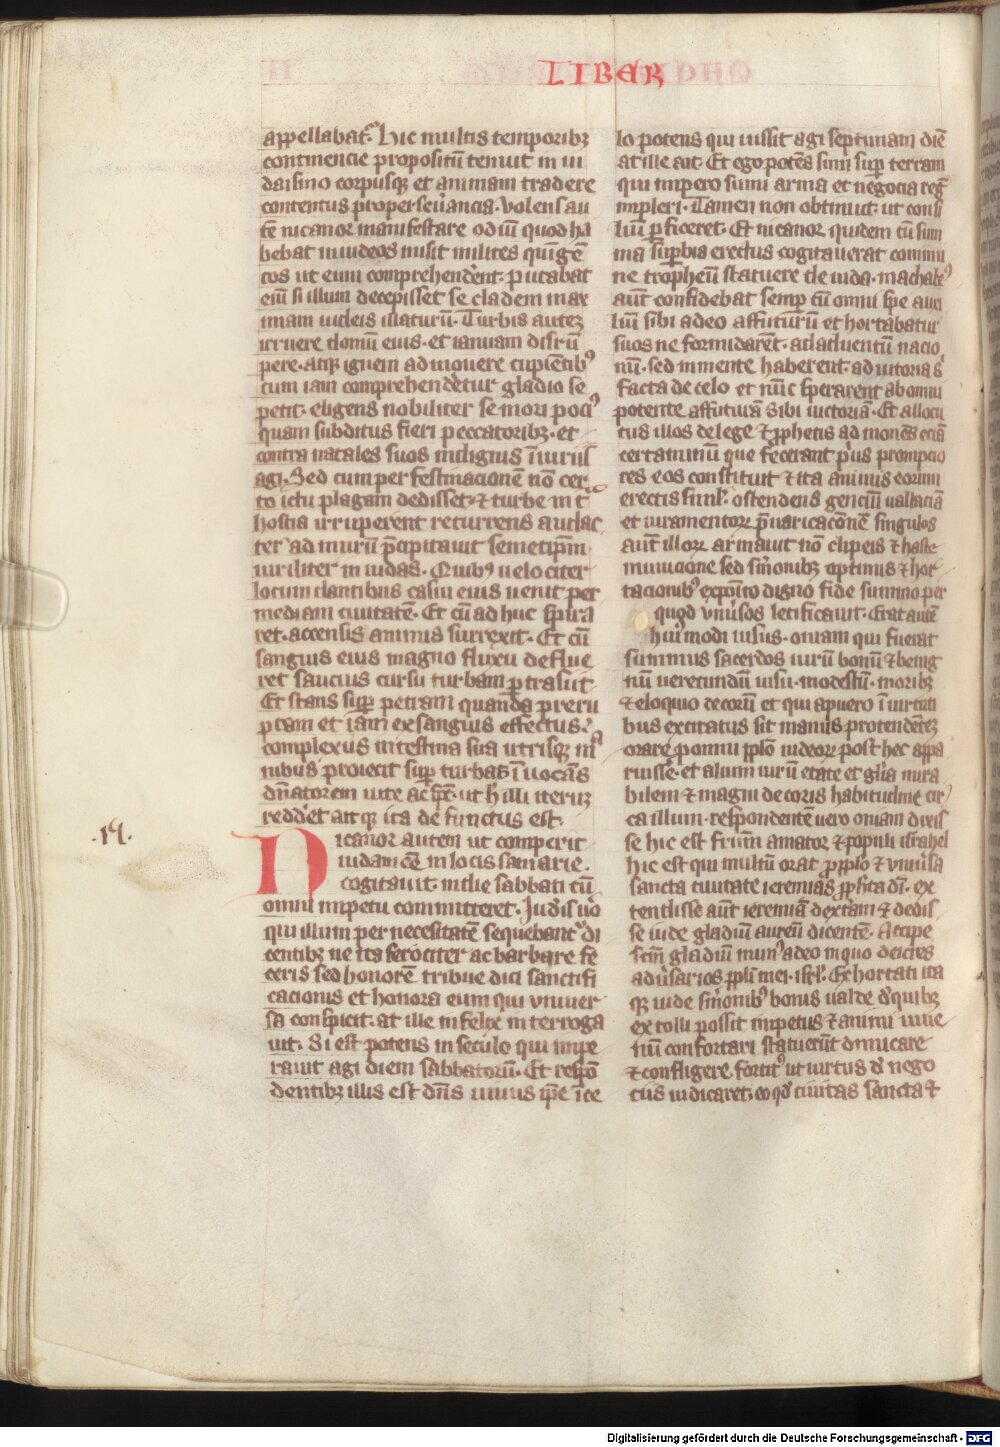 LIBER
appellabat᷑. hic multis temporibꝫ
continencie propositū tenuit in iu
daismo corpusqꝫ et animam tradere
contentus pro perseuerancia. Volens au
tē nicanor manifestare odiū quod ha
bebat in iudeos misit milites quingē
tos ut eum comprehenderent. putabat
eni si illum decepisset se cladem max
imam iudeis illaturū. Turbis autē
irruere domū eius. et ianuam disrū
pere. atqꝫ ignem admouere cupientibꝰ
cum iam comprehenderetur gladio se
petit. eligens nobiliter se mori pociꝰ
quam subditus fieri peccatoribꝫ. et
contra natales suos indignis iniuriis
agi. Sed cum per festinacionem nō cer
to ictu plagam dedisset. ⁊ turbe int̄
hostia irruperent recurrens audac
ter ad murū p̄cipitauit semetip̄m
uiriliter in iudas. Quibꝰ uelociter
locum dantibus casui eius uenit per
mediam ciuitatē. Et cū ad huc spira
ret. accensis animis surrexit. Et cū
sanguis eius magno fluxu deflue
ret saucius cursu turbam ꝑtrasiit
Et stans suꝑ petram quandā preru
ptam et iam exsanguis effectus.
complexus intestina sua utrisqꝫ ma
nibus proiecit suꝑ turbas īuocās
dn̄atorem uite ac sp̄c. ut h̄ illi iterū
redderet atqꝫ ita defunctus est.
.14.
Nicanor autem ut comperit
iudam eē in locis samarie.
cogitauit. in die sabbati cū
omni impetu committeret. Iudeis uͦo
qui illum per necesitatē sequebant᷑ di
centibus ne ita ferociter ac barbare fe
ceris sed honorē tribue diei sanctifi
cacionis et honora eum qui vniuer
sa conspicit. at ille infelix interroga
uit. Si est potens in seculo qui impe
rauit agi diem sabbatorū. Et respō
dentibꝫ illis est dn̄s uiuus ip̄e ī ce
lo potens qui iussit agi septimam diē
at ille ait. Et ego potēs sum suꝑ terram
qui impero sumi arma et negocia reg̅
impleri. Tamen non obtinuit. ut consi
liū ꝑficeret. Et nicanor quidem cū sum
ma suꝑbia erectus cogitauerat commu
ne tropheū statuere de iuda. machabeꝰ
aut̄ confidebat semꝑ cū omni spe auxi
liū sibi a deo affuturū et hortabatur
suos ne formidarēt. ad aduentū nacio
nū. sed in mente haberent. adiutoria s
facta de celo et nūc sperarent ab omni
potente affuturā sibi uictoriā. Et allocu
tus illos de lege ⁊ ꝓphetis admonēs eciā
certaminū que fecerant pͥus prompcio
res eos constituit ⁊ ita animis eorum
erectis siml̄. ostendens genciū uallaciā
et iuramentoꝝ p̄uaricacōnē singulos
aut̄ illoꝝ armauit nō clipeis ⁊ haste
municione sed sermonibꝫ optimis ⁊ hor
tacionibꝰ exposito digno fide sumno per
quod vniuͬsos letificauit. Erat autē
huiꝰmodi uisus. oniam qui fuerat
summus sacerdos uirū bonū ⁊ benig
nū uerecundū uisu. modestū. moribꝫ
⁊ eloquio decorū et qui a puero ī uirtuti
bus exercitatus sit manus protendētē
orare pro omni pplō iudeoꝝ post hec appa
ruisse. et alium uirū etate et glīa mira
bilem ⁊ magni decoris habitudine cir
ca illum. respondentē uero oniam dixis
se hic est fr̄um amator ⁊ populi israhel
hic est qui multū orat pro pplo ⁊ vniuͬsa
sancta ciuitate ieremias ꝓph̄ta dī. ex
tendisse aut̄ ieremiā dextram ⁊ dedis
se iude gladiū aureū dicentē. Accipe
scm̄ gladiū munꝰ a deo in quo deicies
aduͬsarios ppl̄i mei. isrl̄. Exhortati ita
qꝫ iude sermonibꝰ bonis ualde de quibꝫ
extolli possit impetus ⁊ animi iuue
num confortari statuerūt dimicare
⁊ confligere fortitͬ ut uirtus de nego
ciis iudicaret. eo qd̄ ciuitas sancta ⁊
Digitalisierung gefördert durch die Deutsche Forschungsgemeinschaft - DFG